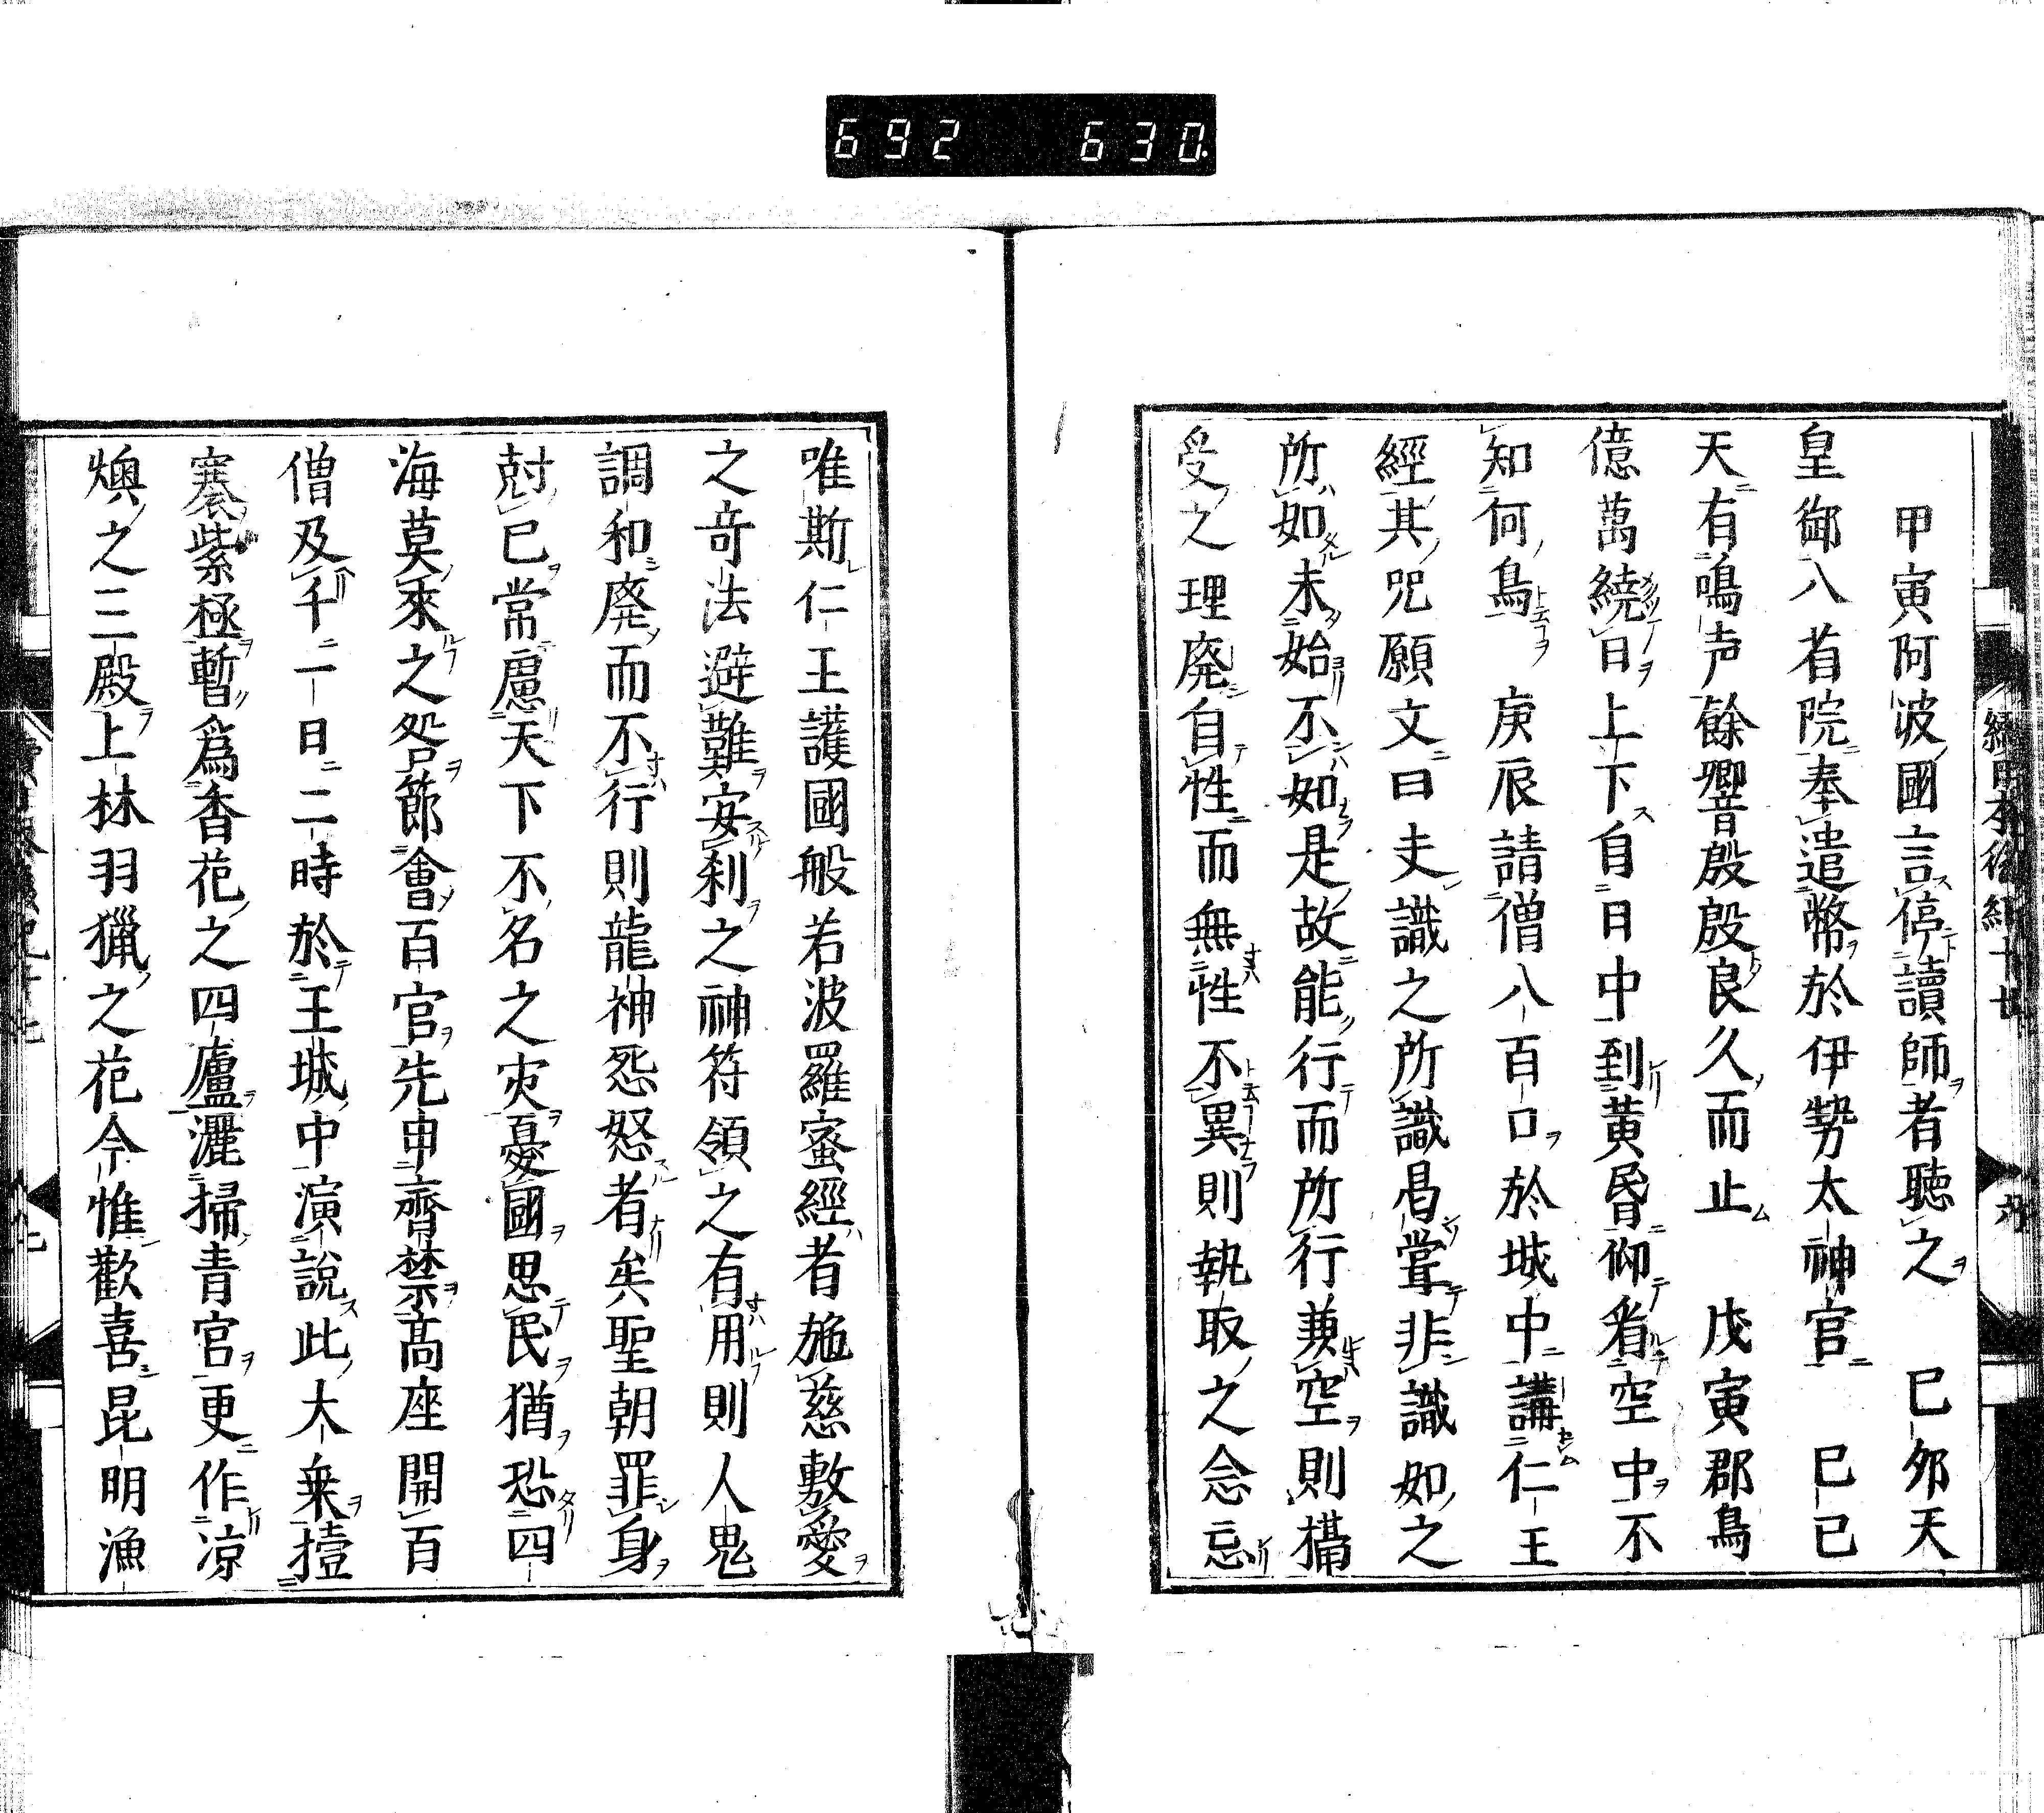 692 630.
甲寅阿波國言停讀師者聽之 己夘天
皇御八省院奉遣幣於伊勢太神官 己巳
天有鳴声餘響殷殷良久而止 戊寅郡鳥
億萬繞日上下自日中到黄昏仰看空中不
知何鳥 庚辰請僧八百口於城中講仁王
經其呪願文曰夫識之所識曷甞非識如之
所如未始不如是故能行而所行兼空則
受之理廃自性而無性不異則執取之念忘
唯斯仁王護國般若波羅蜜經者施慈敷愛
之奇法避難安刹之神符領之有用則人鬼
調和廃而不行則龍神怨怒者矣聖朝罪身
尅已常慮天下不名之灾憂國思民猶恐四
海莫来之咎節會百官先申齋禁高座開百
僧及千一日二時於王城中演說此大乗
褰紫極暫爲香花之四廬灑掃青宮更作凉
燠之三殿上林羽獵之花今惟歡喜昆明漁